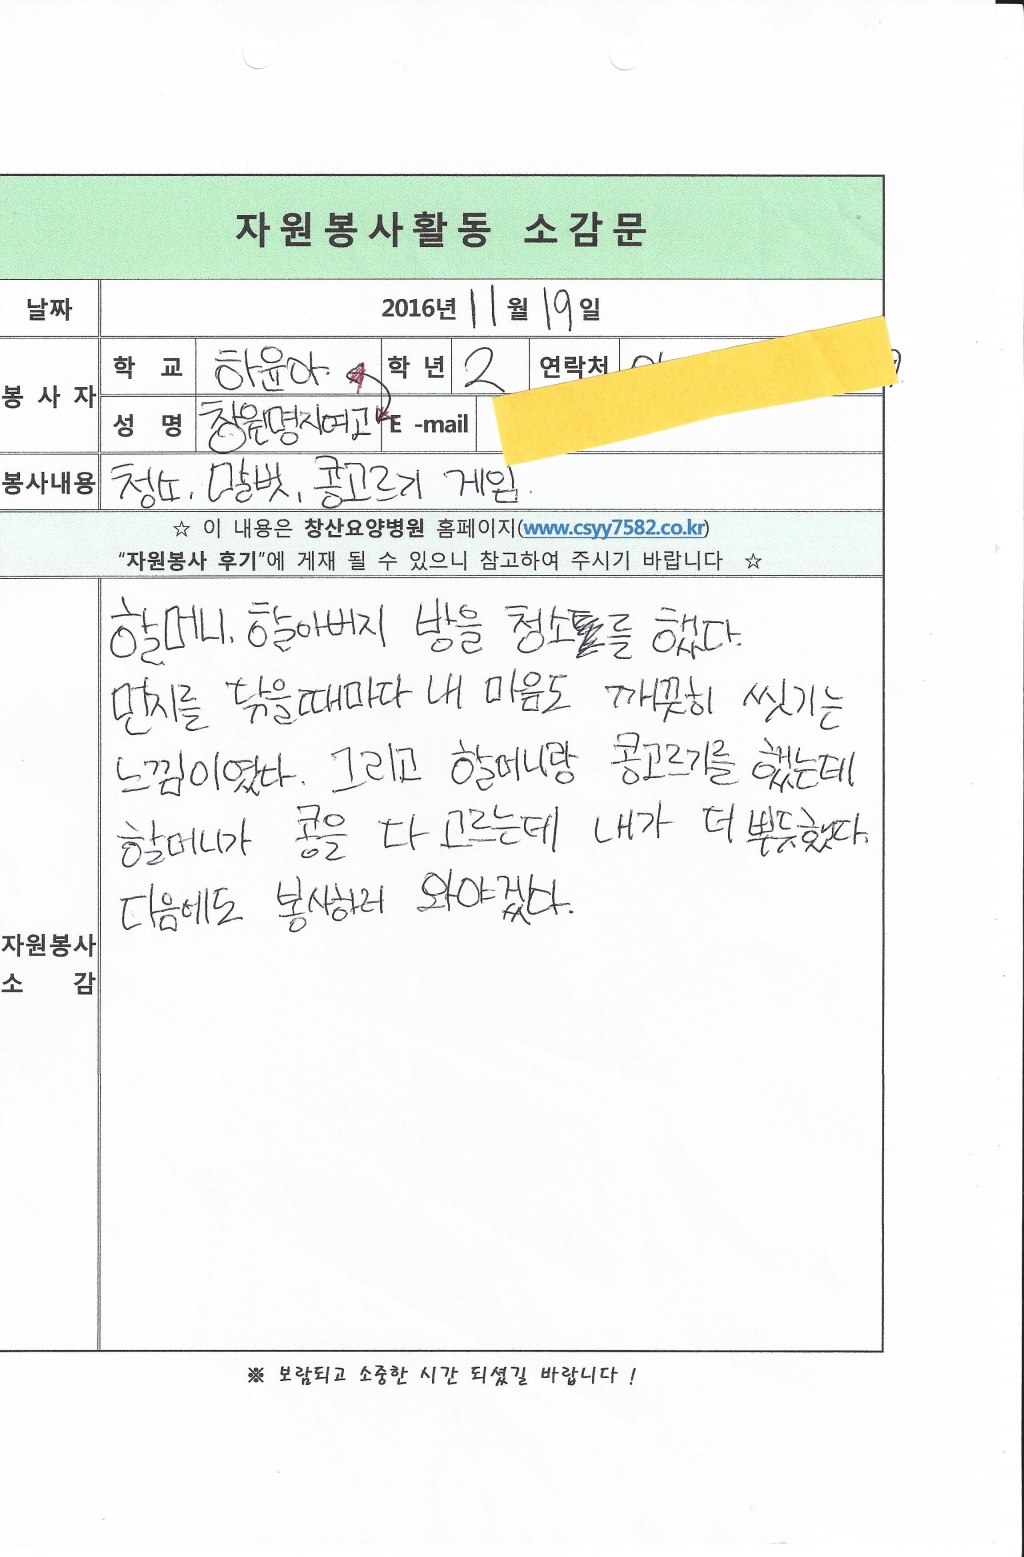 자원봉사활동 소감문
날짜 2016년 11월 19일
봉사자
학 교 하윤아 학년 2 연락처
성 명 창원명지여고 E -mail
봉사내용 청소, 말벗, 콩고르기 게임.
☆ 이 내용은 창산요양병원 홈페이지(www.csyy7582.co.kr)
“자원봉사 후기”에 게재 될 수 있으니 참고하여 주시기 바랍니다 ☆
할머니, 할아버지 방을 청소를 했다.
먼지를 닦을때마다 내 마음도 깨끗히 씻기는
느낌이였다. 그리고 할머니랑 콩고르기를 했는데
할머니가 콩을 다 고르는데 내가 더 뿌듯했다.
다음에도 봉사하러 와야겠다.
자원봉사
소 감
※ 보람되고 소중한 시간 되셨길 바랍니다 !